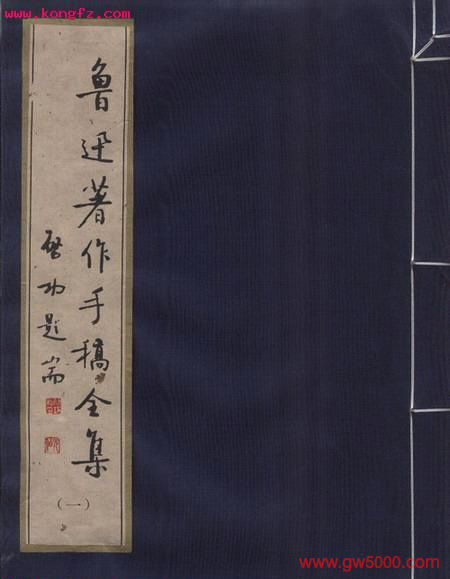 www.kongfz.com
鲁迅著作手稿全集
启功题耑
(一)
www.gw5000.com